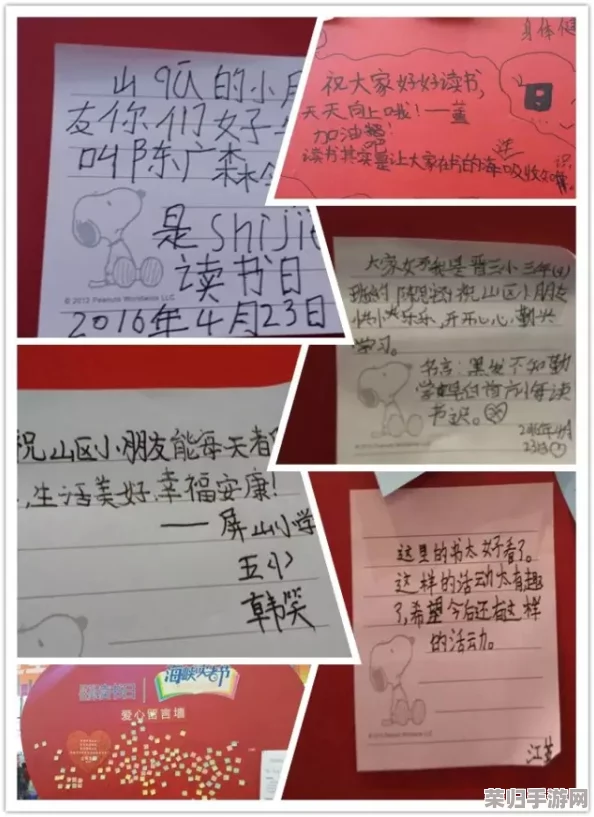 山qū的小朋
友你们好
叫陈广森
是shijie
读书日
2016年4月23日
© 2012 Peanuts Worldwide LLC
身体健
祝大家好好读书,
天天向上哦!——董
加油吧
读书其实是让大家在书的海洋吸收知识
大家好我是晋三小三年
祝山区小朋友
快快乐乐、开开心心、勤兴
学习。
名言:黑发不知勤
学早,白首方悔读
书迟。
2016年4月
23日
祝山区小朋友能每天都
,生活美好,幸福安康!
——屏山小学
五(1)
韩笑
这里的书太好看了。
这样的活动太有趣
了,希望今后还有这样
的活动。
读书日
海峡读书节
爱心留言墙
荣归手游网